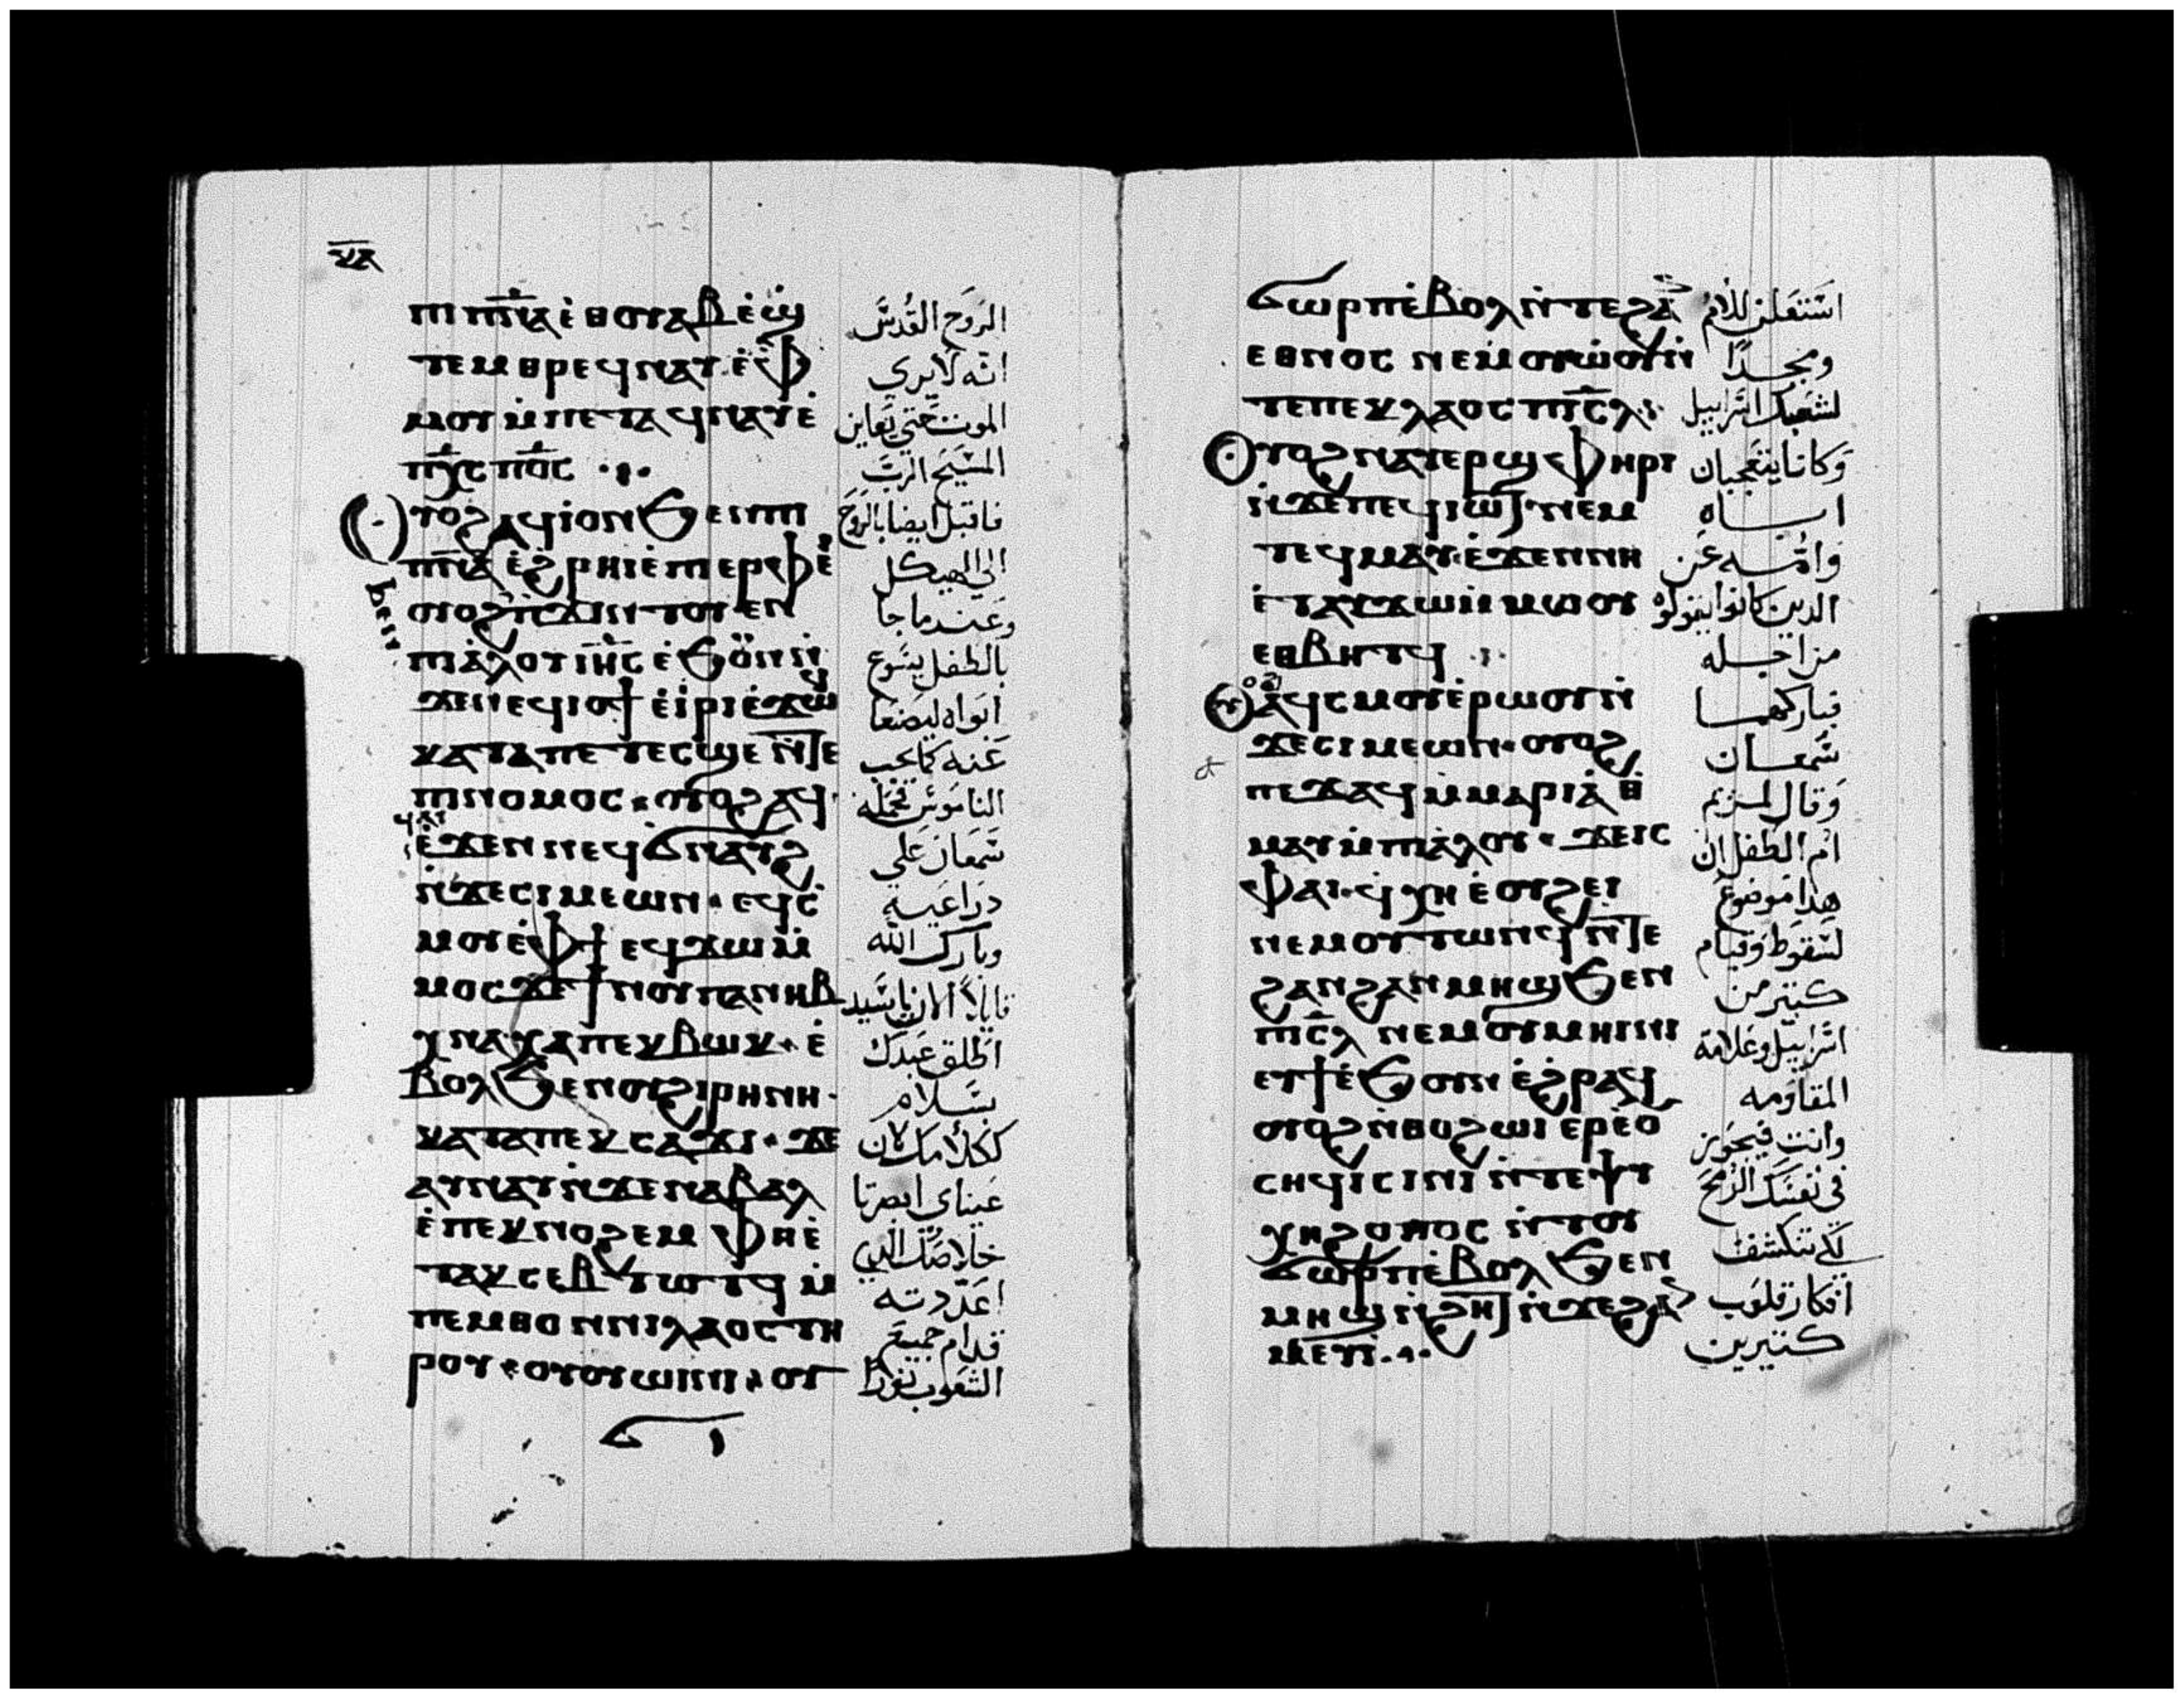 ⲕⲁ
ⲡⲓⲡ̅ⲛ̅ⲁ̅ ⲉ̀ⲑⲟⲩⲁⲃ ⲉ̀ϣ
ⲧⲉⲙⲑⲣⲉϥⲛⲁⲩ ⲉ̀ⲫ̀
ⲙⲟⲩ ⲙ̀ⲡⲉⲧⲁϥⲛⲁⲩ ⲉ̀
ⲡⲭ̅ⲥ̅ ⲡ⳪
ⲟⲩⲟϩ ⲁϥⲓ̀ⲟⲛ ϧⲉⲛⲡⲓ
ⲡ̅ⲛ̅ⲁ̅ ⲉ̀ϩⲣⲏⲓ ⲉ̀ⲡⲓⲉⲣⲫⲉ̀ⲓ
ⲟⲩⲟϩ ϧⲉⲛ ⲡ̀ϫⲓⲛⲧⲟⲩⲉⲛ
ⲡⲓⲁ̀ⲗⲟⲩ ⲓⲏ̅ⲥ̅ ⲉ̀ϧⲟⲩⲛ ⲛ̀
ϫⲉⲛⲉϥⲓⲟϯ ⲉ̀ⲓ̀ⲣⲓ ⲉ̀ϫⲱϥ
ⲕⲁⲧⲁ ⲡⲉⲧⲉⲥϣⲉ ⲛ̀ⲧⲉ
ⲡⲓⲛⲟⲙⲟⲥ ⲟⲩⲟϩ ⲁϥ
ϥⲁⲓ
ⲉ̀ϫⲉⲛ ⲛⲉϥϭⲛⲁⲩϩ
ⲛ̀ϫⲉⲥⲓⲙⲉⲱⲛ ⲉϥⲥ̀
ⲙⲟⲩ ⲉ̀ⲫϯ ⲉϥϫⲱ ⲙ̀
ⲙⲟⲥ ϫⲉ ϯⲛⲟⲩ ⲡⲁⲛⲏⲃ
ⲭⲛⲁⲭⲁ ⲡⲉⲕⲃⲱⲕ ⲉ̀
ⲃⲟⲗ ϧⲉⲛ ⲟⲩϩⲓⲣⲏⲛⲏ
ⲕⲁⲧⲁ ⲡⲉⲕⲥⲁϫⲓ ϫⲉ
ⲁⲩⲛⲁⲩ ⲛ̀ϫⲉⲛⲁⲃⲁⲗ
ⲉ̀ⲡⲉⲕⲛⲟϩⲉⲙ ⲫⲏ ⲉ̀
ⲧⲁⲕⲥⲉⲃⲧⲱⲧϥ ⲙ̀
ⲡⲉⲙⲑⲟ ⲛⲛⲓⲗⲁⲟⲥ ⲧⲏ
ⲣⲟⲩ ⲟⲩⲟⲩⲱⲓⲛⲓ ⲟⲩ
الروح القدس
انه لا يري
الموت حتي يعاين
المسيح الرب
فاقبل ايضا بالروح
الي الهيكل
وعند ما جا
بالطفل يسوع
ابواه ليصنعا
عنه كما يجب
الناموس فحمله
سمعان علي
دراعيه
وبارك الله
قايلا الان يا سيد
اطلق عبدك
بسلام
ككلامك لان
عيناي ابصرتا
خلاصك الدي
اعددته
قدام جميع
الشعوب نورا
ϭⲱⲣⲡ ⲉ̀ⲃⲟⲗ ⲛ̀ⲧⲉϩⲁⲛ
ⲉⲑⲛⲟⲥ ⲛⲉⲙ ⲟⲩⲱ̀ⲟⲩ ⲛ̀
ⲧⲉⲡⲉⲕⲗⲁⲟⲥ ⲡⲓⲥ̅ⲗ̅
ⲟⲩⲟϩ ⲛⲁⲩⲉⲣϣⲫⲏⲣⲓ
ⲛ̀ϫⲉⲡⲉϥⲓⲱⲧ ⲛⲉⲙ
ⲧⲉϥⲙⲁⲩ ⲉ̀ϫⲉⲛ ⲛⲏ
ⲉ̀ⲧⲁⲩϫⲱ ⲙ̀ⲙⲱⲟⲩ
ⲉⲑⲃⲏⲧϥ
ⲟⲩⲟϩ ⲁϥⲥⲙⲟⲩ ⲉ̀ⲣⲱⲟⲩ ⲛ̀
ϫⲉⲥⲓⲙⲉⲱⲛ ⲟⲩⲟϩ
ⲡⲉϫⲁϥ ⲙ̀ⲙⲁⲣⲓⲁ ⲑ̀
ⲙⲁⲩ ⲙ̀ⲡⲓⲁ̀ⲗⲟⲩ ϫⲉ ⲓⲥ
ⲫⲁⲓ ϥⲭⲏ ⲉ̀ⲟⲩϩⲉⲓ
ⲛⲉⲙ ⲟⲩⲧⲱⲛϥ ⲛ̀ⲧⲉ
ϩⲁⲛϩⲁⲛⲙⲏϣ ϧⲉⲛ
ⲡⲓⲥ̅ⲗ̅ ⲛⲉⲙ ⲟⲩⲙⲏⲓⲛⲓ
ⲉⲩϯ ⲉ̀ϧⲟⲩⲛ ⲉ̀ϩⲣⲁϥ
ⲟⲩⲟϩ ⲛ̀ⲑⲟ ϩⲱⲓ ⲉⲣⲉ̀ⲟ
ⲥⲏϥⲓ ⲥⲓⲛⲓ ⲛ̀ⲧⲉⲯⲩ
ⲭⲏ ϩⲟⲡⲟⲥ ⲛ̀ⲧⲟⲩ
ϭⲱⲣⲡ ⲉ̀ⲃⲟⲗ ϧⲉⲛ
ⲙⲏϣ ⲛ̀ϩⲏⲧ ⲛ̀ϫⲉϩⲁⲛ
ⲙⲉⲩⲓ
استعلن للامم
ومجدا
لشعبك اسرابيل
وكانا يتعجبان
اباه
وامه عن
الدين كانوا يقولوه
من اجله
فباركهما
سمعان
وقال لمريم
ام الطفل ان
هدا موضوع
لسقوط وقيام
كتير من
اسرابيل وعلامة
المقاومه
وانت فيجوز
في نفسك الرمح
لكي تنكشف
افكار قلوب
كتيرين